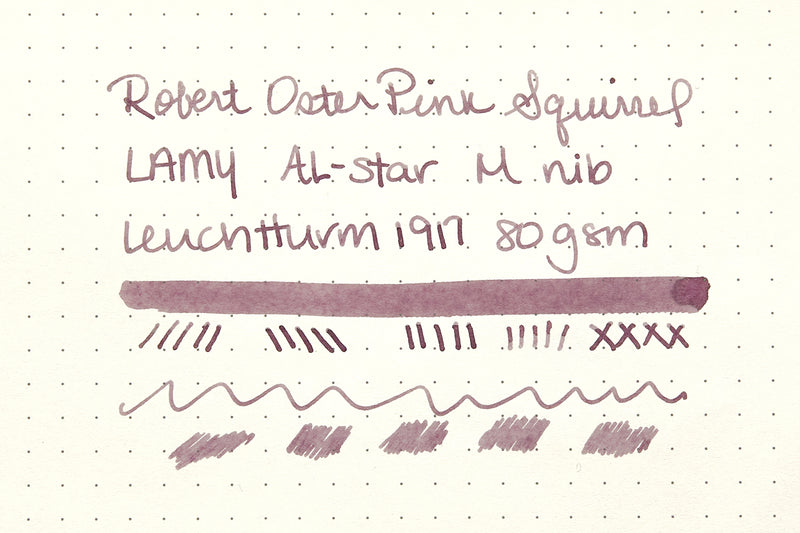 Robert Oster Pink Squirrel
LAMY AL-star M nib
Leuchtturm 1917 80gsm